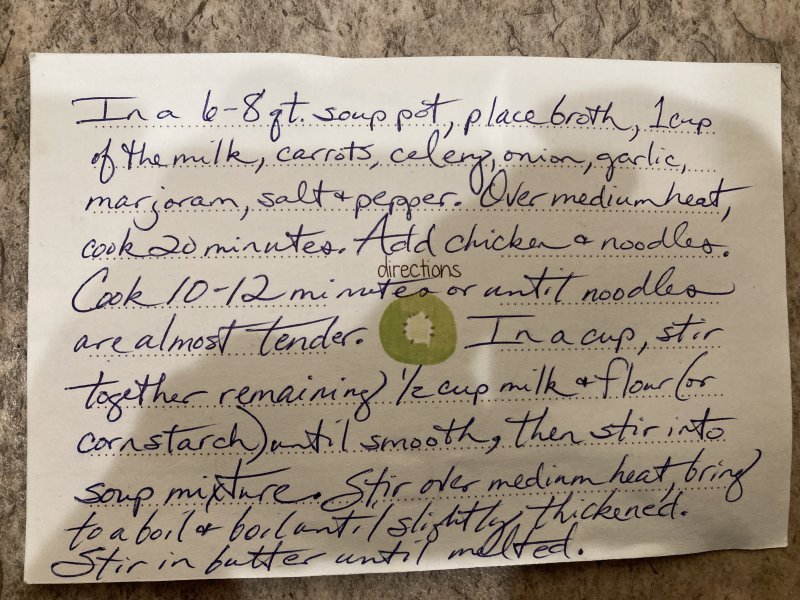 In a 6-8 qt. soup pot, place broth, 1 cup
of the milk, carrots, celery, onion, garlic,
marjoram, salt & pepper. Over medium heat,
cook 20 minutes. Add chicken & noodles.
directions
Cook 10-12 minutes or until noodles
are almost tender. In a cup, stir
together remaining 1/2 cup milk & flour (or
cornstarch) until smooth, then stir into
soup mixture. Stir over medium heat, bring
to a boil & boil until slightly thickened.
Stir in butter until melted.